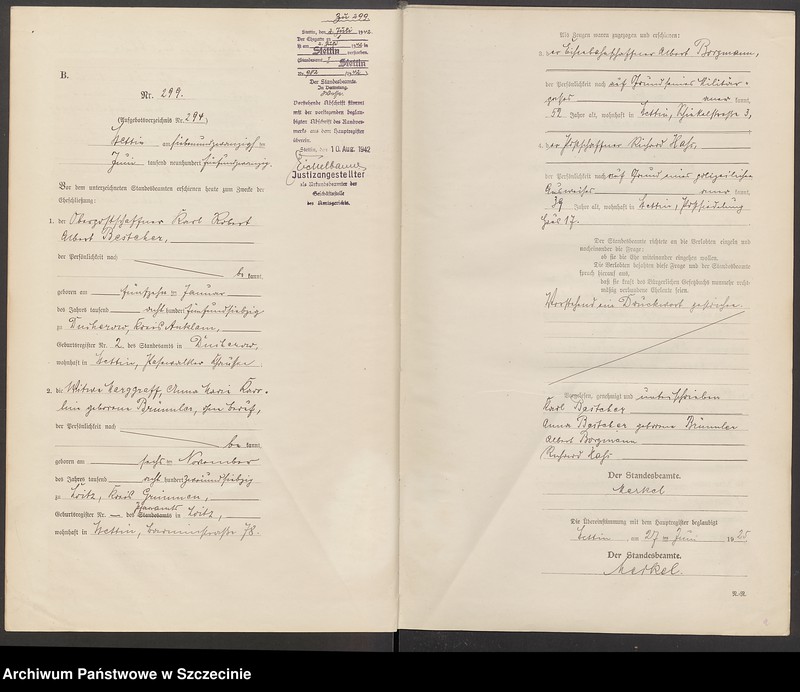 Zu 299.
Stettin, den 4. Juli 1942.
Der Ehegatte zu
ist am 1942 in
Stettin verstorben.
(Standesamt I Stettin
Nr. 982 /1942.)
Der Standesbeamte.
In Vertretung.
Vorstehende Abschrift stimmt
mit der vorliegenden beglau-
bigten Abschrift des Randver-
merks aus dem Hauptregister
überein.
Stettin, den 10. Aug. 1942
Eichelbaum
Justizangestellter
als Urkundsbeamter der
Geschäftsstelle
des Amtsgerichts.
B.
Nr. 299.
(Aufgebotsverzeichnis Nr. 294)
Stettin am siebenundzwanzigsten
Juni tausend neunhundert fünfundzwanzig.
Vor dem unterzeichneten Standesbeamten erschienen heute zum Zwecke der
Eheschließung:
1. der Oberpostschaffner Karl Robert
Albert Beitcher,
der Persönlichkeit nach
be kannt,
geboren am fünfzehnten Januar
des Jahres tausend acht hundert fünfundsiebzig
zu Kreis Anklam,
Geburtsregister Nr. 2 des Standesamts in
wohnhaft in Stettin, Pasewalker Chaussee
2. die Witwe Berggreff, Anna Marie Karo-
line geborene Brümmler, ohne Beruf,
der Persönlichkeit nach
be kannt,
geboren am sechsten November
des Jahres tausend acht hundert zweiundsiebzig
zu Loitz, Kreis Grimmen,
Geburtsregister Nr. — des Pfarramts Standesamts in Loitz,
wohnhaft in Stettin, Barnimstraße 78.
Als Zeugen waren zugezogen und erschienen:
3. der Eisenbahnschaffner Albert Borgmann,
der Persönlichkeit nach auf Grund seines Militär-
passes aner kannt,
52 Jahre alt, wohnhaft in Stettin, Schinkelstraße 3,
4. der Postschaffner Richard Hafs,
der Persönlichkeit nach auf Grund eines polizeilichen
Ausweises aner kannt,
39 Jahre alt, wohnhaft in Stettin, Postsiedelung
Haus 17.
Der Standesbeamte richtete an die Verlobten einzeln und
nacheinander die Frage:
ob sie die Ehe miteinander eingehen wollen.
Die Verlobten bejahten diese Frage und der Standesbeamte
sprach hierauf aus,
daß sie kraft des Bürgerlichen Gesetzbuchs nunmehr recht-
mäßig verbundene Eheleute seien.
Vorstehend ein Druckwort gestrichen.
Vorgelesen, genehmigt und unterschrieben
Karl Beitcher
Anna Beitcher geborene Brümmler
Albert Borgmann
Richard Hafs
Der Standesbeamte.
Merkel
Die Übereinstimmung mit dem Hauptregister beglaubigt
Stettin, am 27 ten Juni 1925
Der Standesbeamte.
Merkel.
R.-R.
Archiwum Państwowe w Szczecinie